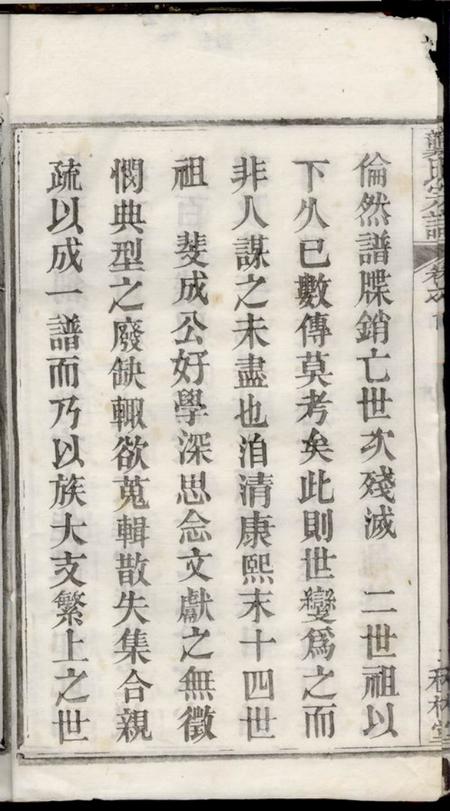 龔氏宗譜
倫然譜牒銷亡世次殘滅　二世祖以
下久已數傳莫考矣此則世變為之而
非人謀之未盡也洎清康熙末十四世
祖　斐成公好學深思念文獻之無徵
憫典型之廢缺輙欲蒐輯散失集合親
疏以成一譜而乃以族大支繁上之世